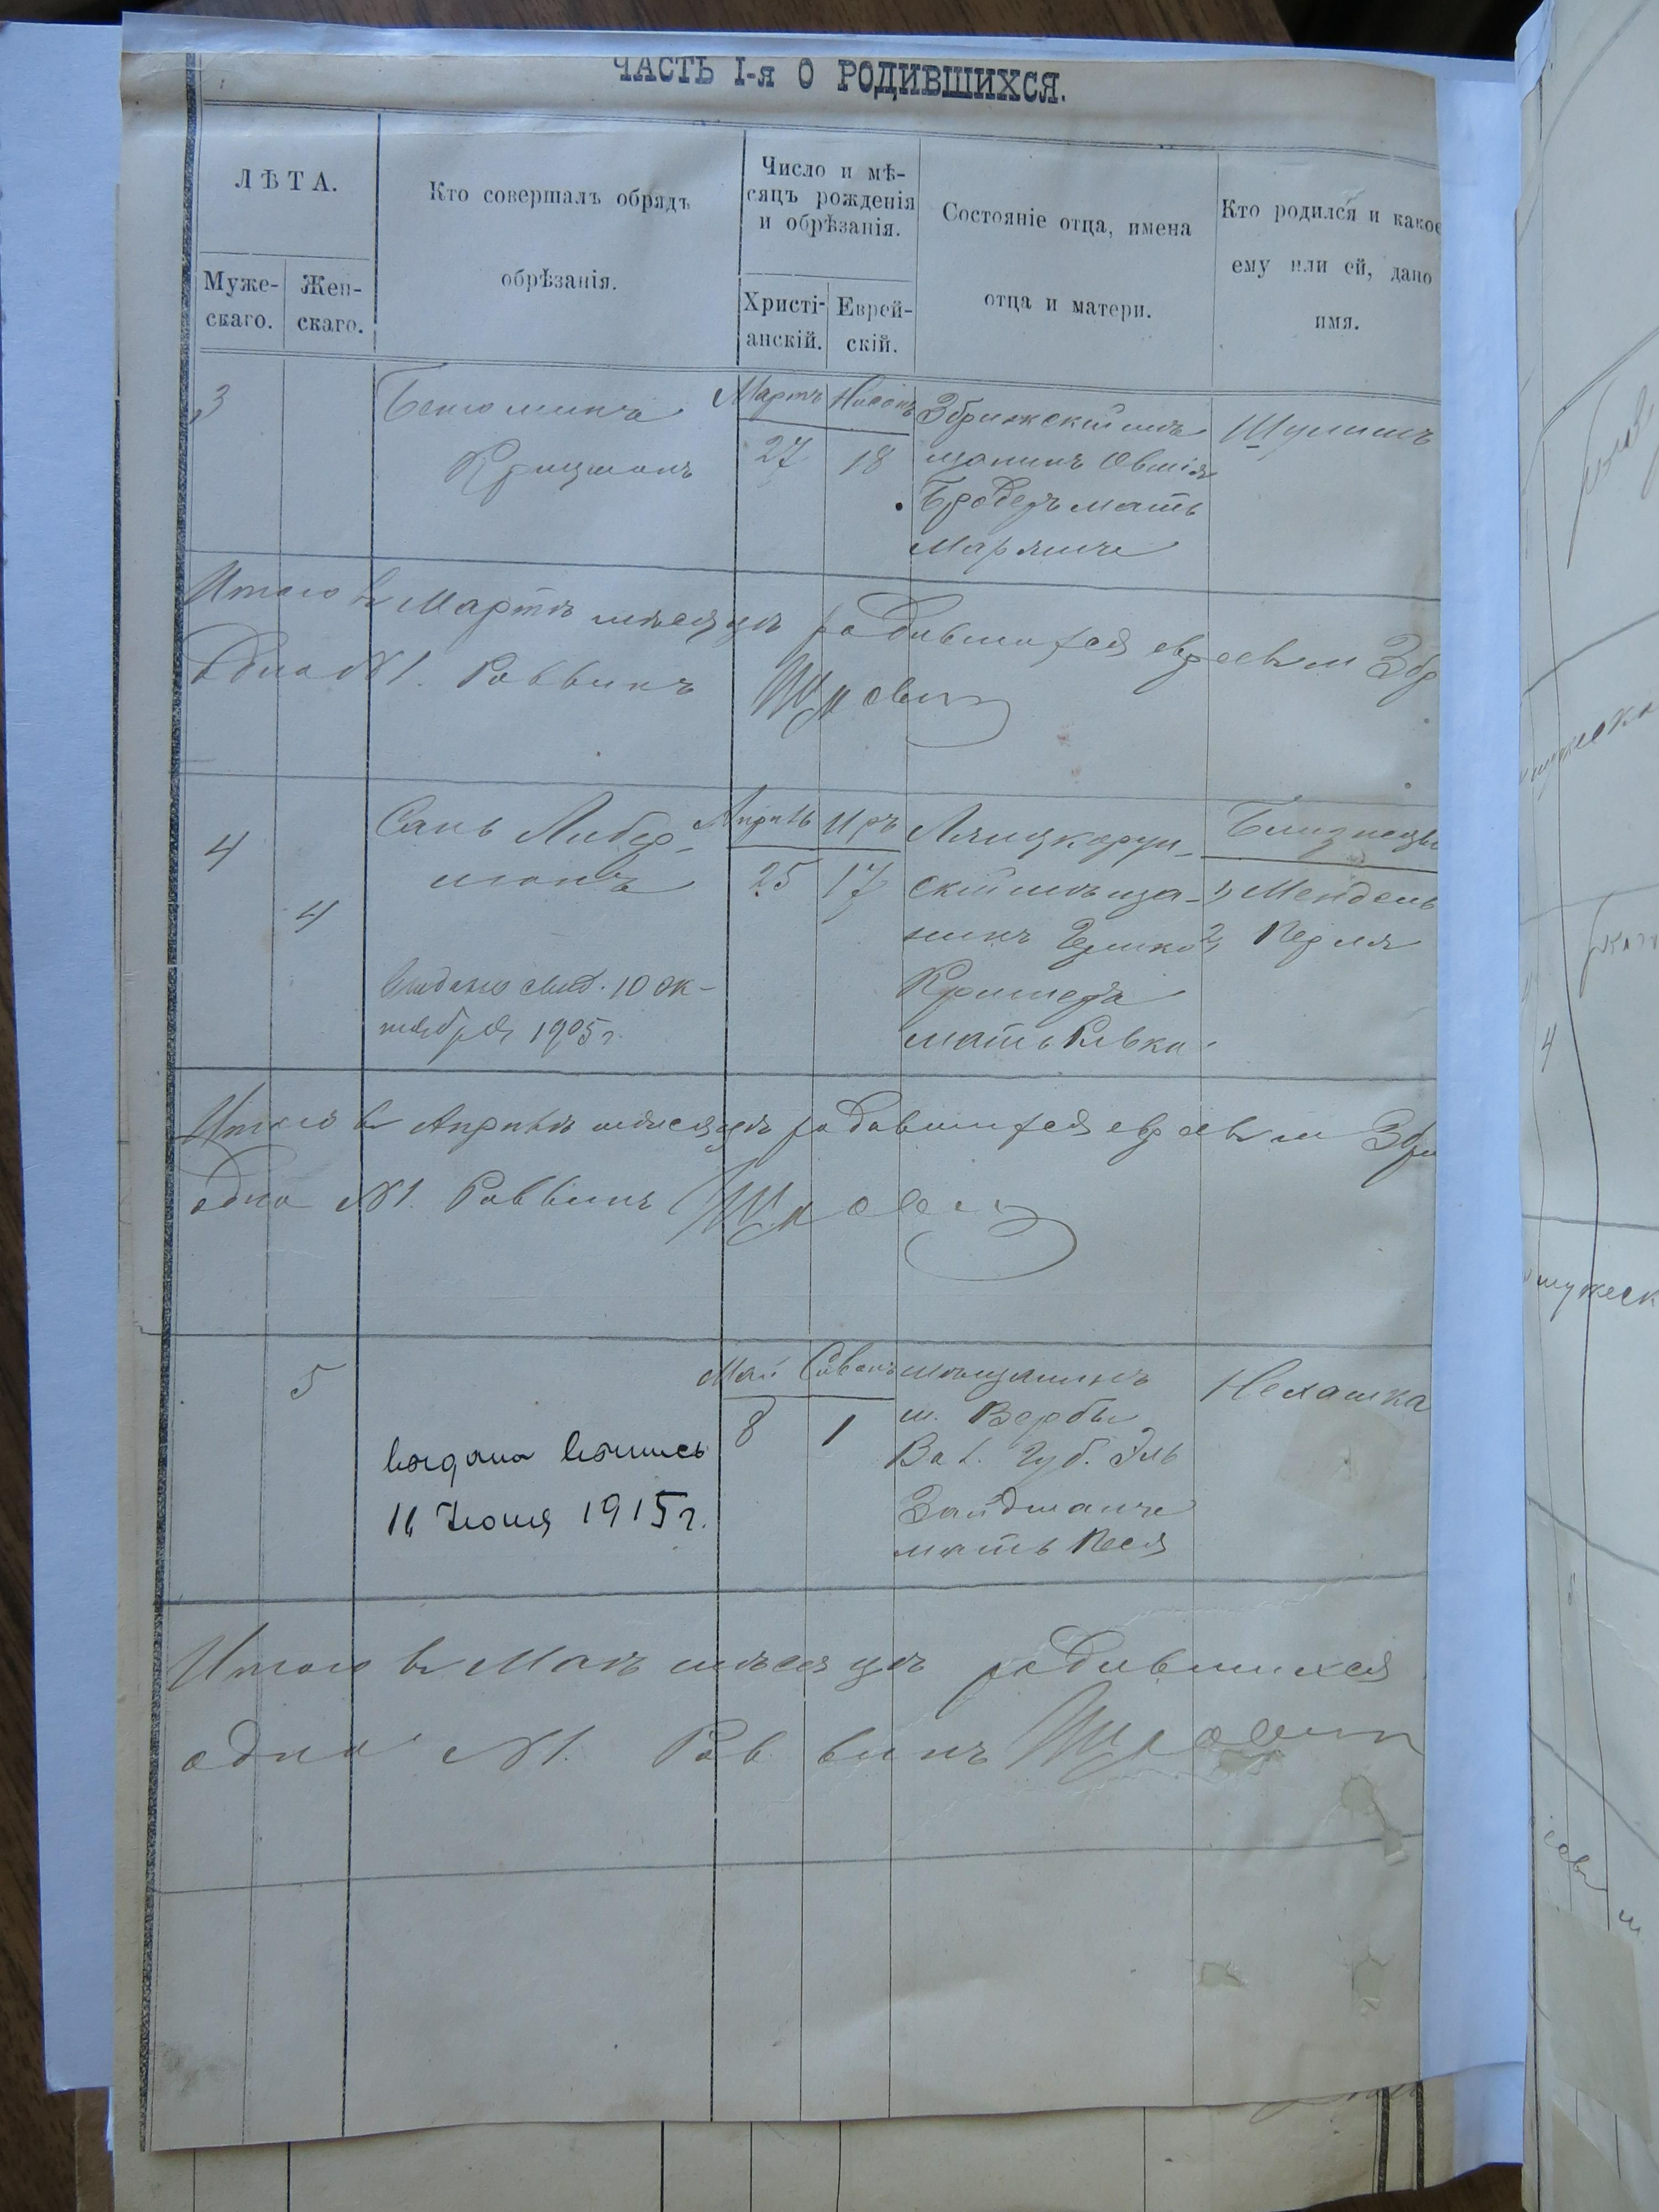 ЧАСТЬ I-я О РОДИВШИХСЯ.
ЛѢТА.
Муже-
скаго.
Жен-
скаго.
Кто совершалъ обрядъ
обрѣзанія.
Число и мѣ-
сяцъ рожденія
и обрѣзанія.
Христі-
анскій.
Еврей-
скій.
Состояніе отца, имена
отца и матери.
Кто родился и какое
ему или ей, дано
имя.
3
Кришманъ
Мартъ
27
Нисонъ
18
Збрижскій мѣ
щанинъ Овшія
Бродеръ мать
Шулимъ
Итого въ Мартѣ мѣсяцѣ родившихся евреевъ м Збр
одно №1. Раввинъ
4
4
Санъ Либер-
манъ
Выдано свид. 10 ок-
тября 1905 г.
Апрѣль
25
Иръ
17
Лянцкорун-
скій мѣща-
нинъ
мать Ривка
Близнецы
1, Мендель
2, Перля
Итого въ Апрѣлѣ мѣсяцѣ родившихся евреевъ м Збр
одно №1. Раввинъ
5
выдана выпись
11 Іюня 1915 г.
Май
8
Сиванъ
1
мѣщанинъ
м. Вербы
Вол. Губ. Эль
Зайдманъ
мать Песя
Итого въ Маѣ мѣсяцѣ родившихся
одна №1. Раввинъ